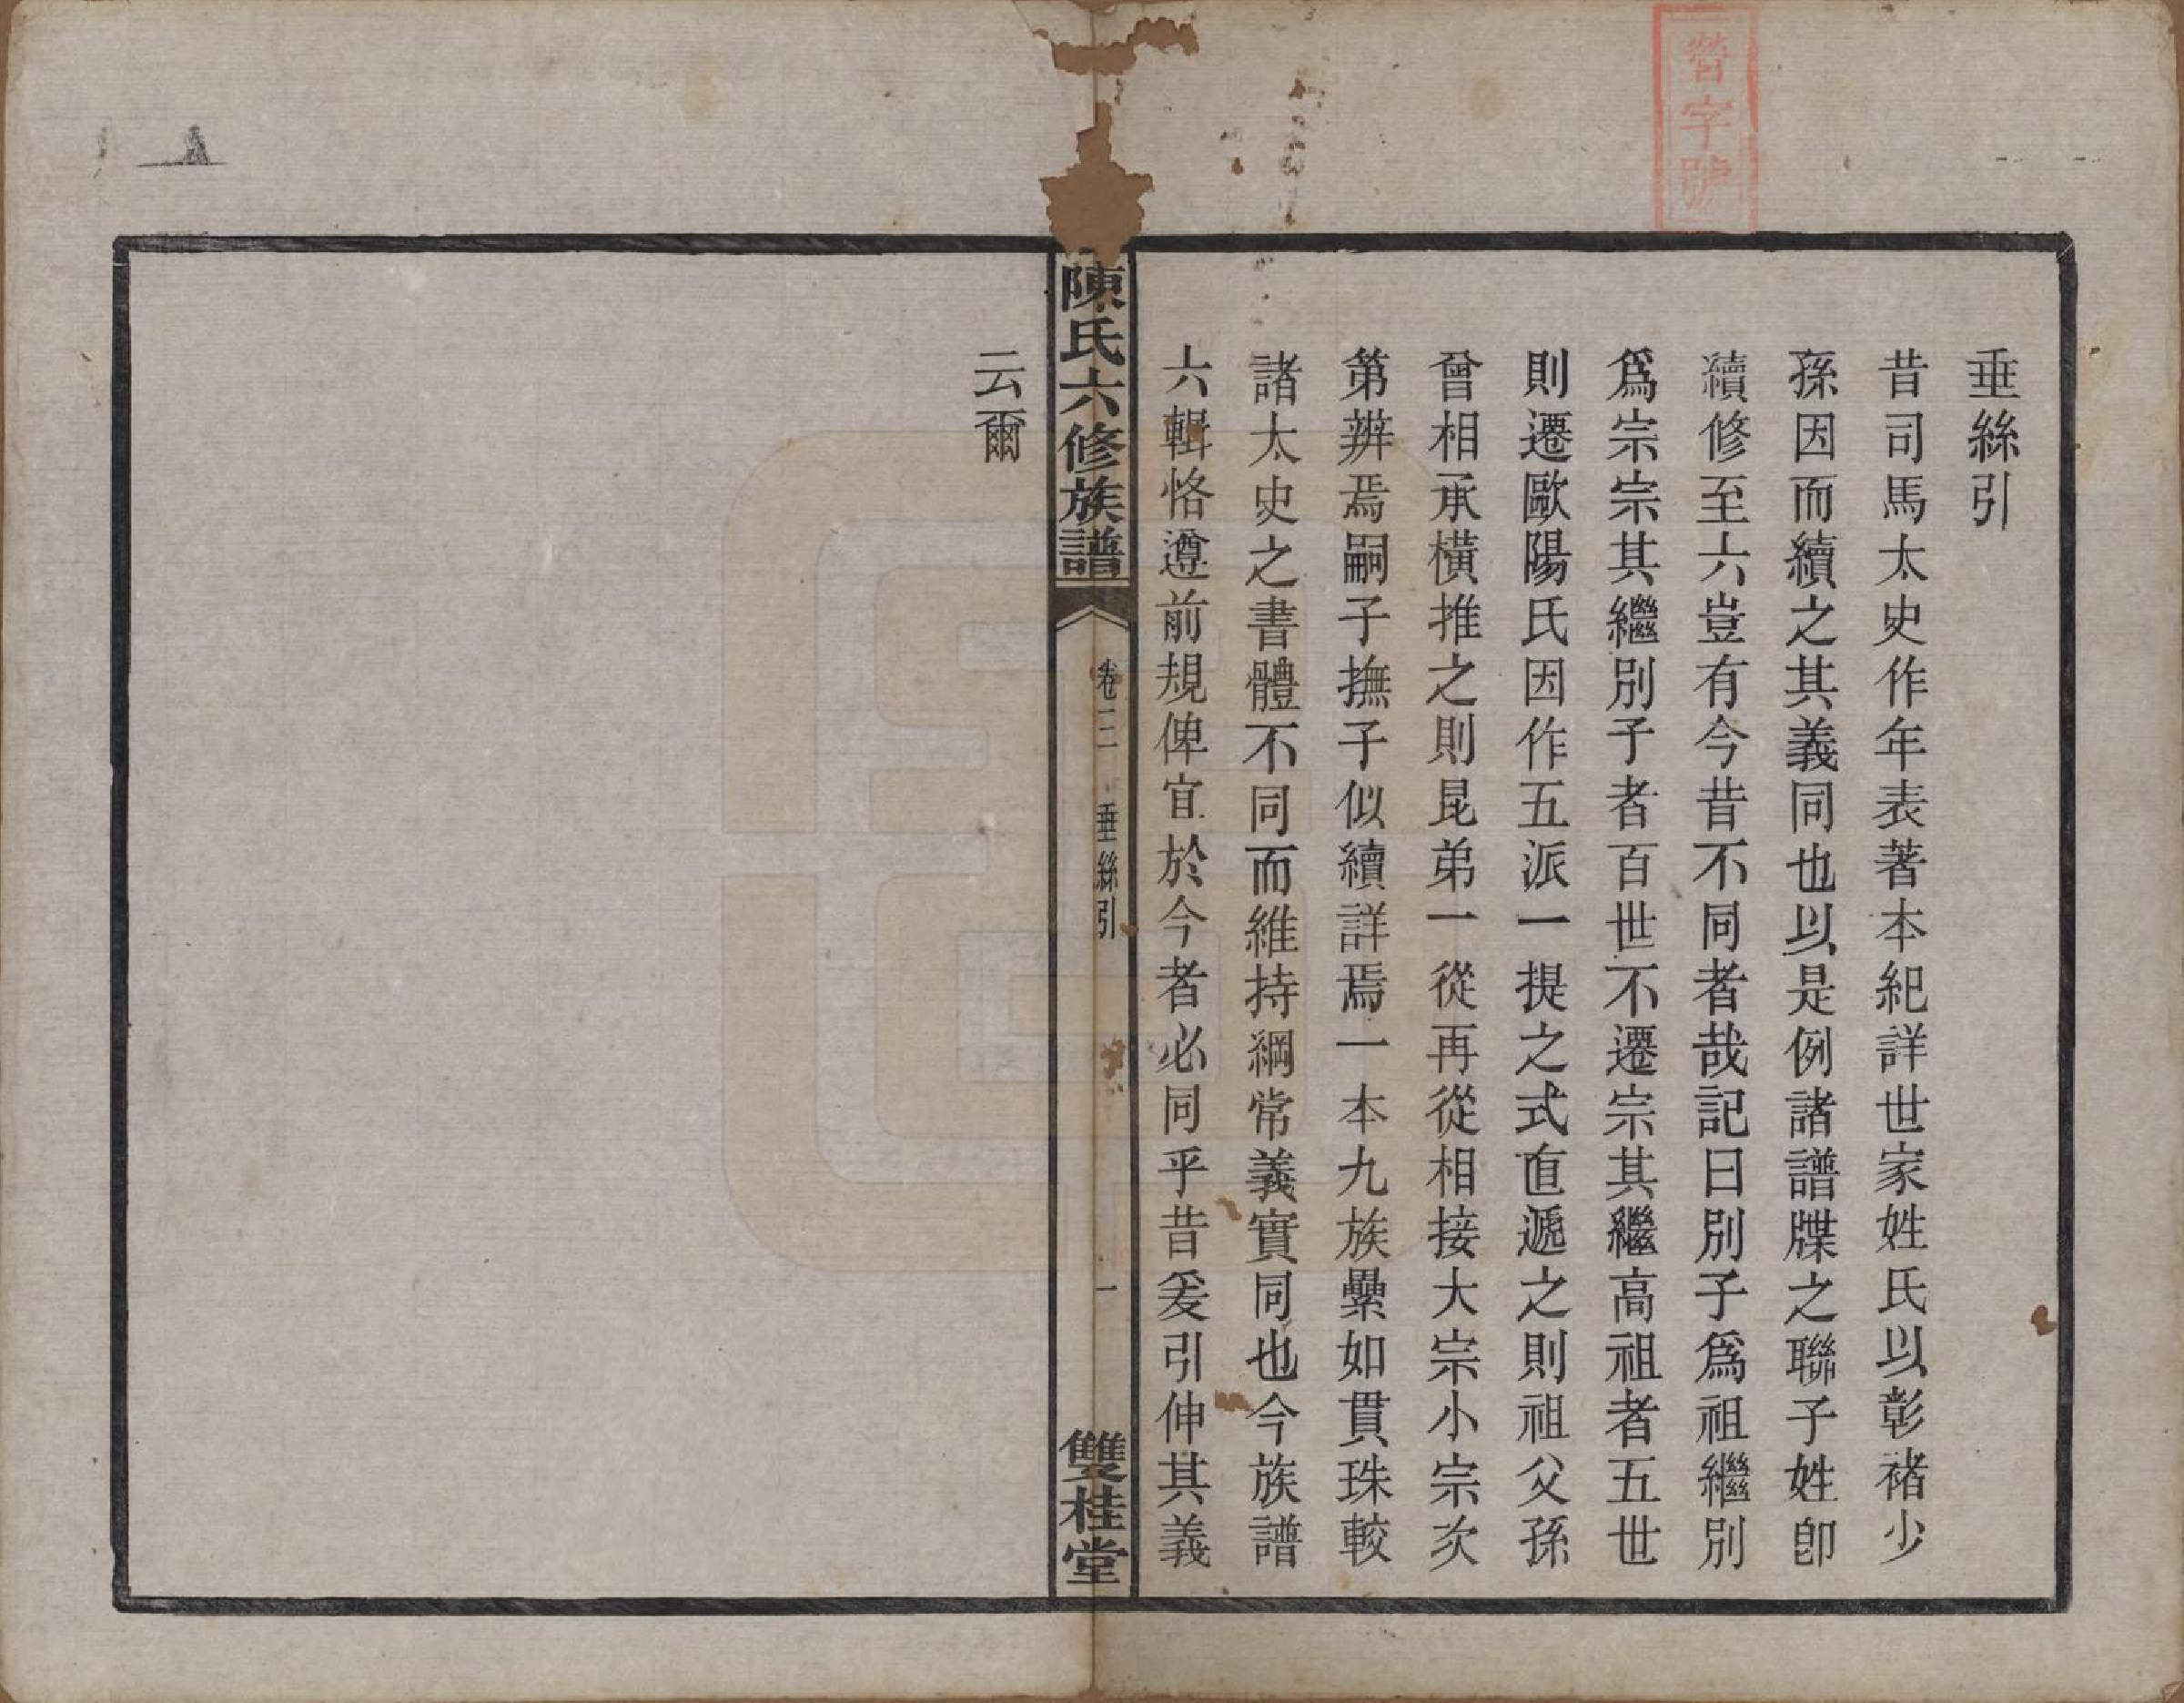 垂絲引
昔司馬太史作年表著本紀詳世家姓氏以彰褚少
孫因而續之其義同也以是例諸譜牒之聯子姓卽
續修至六豈有今昔不同者哉記曰別子爲祖繼別
爲宗宗其繼別子者百世不遷宗其繼高祖者五世
則遷歐陽氏因作五派一提之式直遞之則祖父孫
曾相承橫推之則昆弟一從再從相接大宗小宗次
第辨焉嗣子撫子似續詳焉一本九族纍如貫珠較
諸太史之書體不同而維持綱常義實同也今族譜
六輯恪遵前規俾宜於今者必同乎昔爰引伸其義
云爾
陳氏六修族譜
卷二
垂絲引
一
雙桂堂
字號